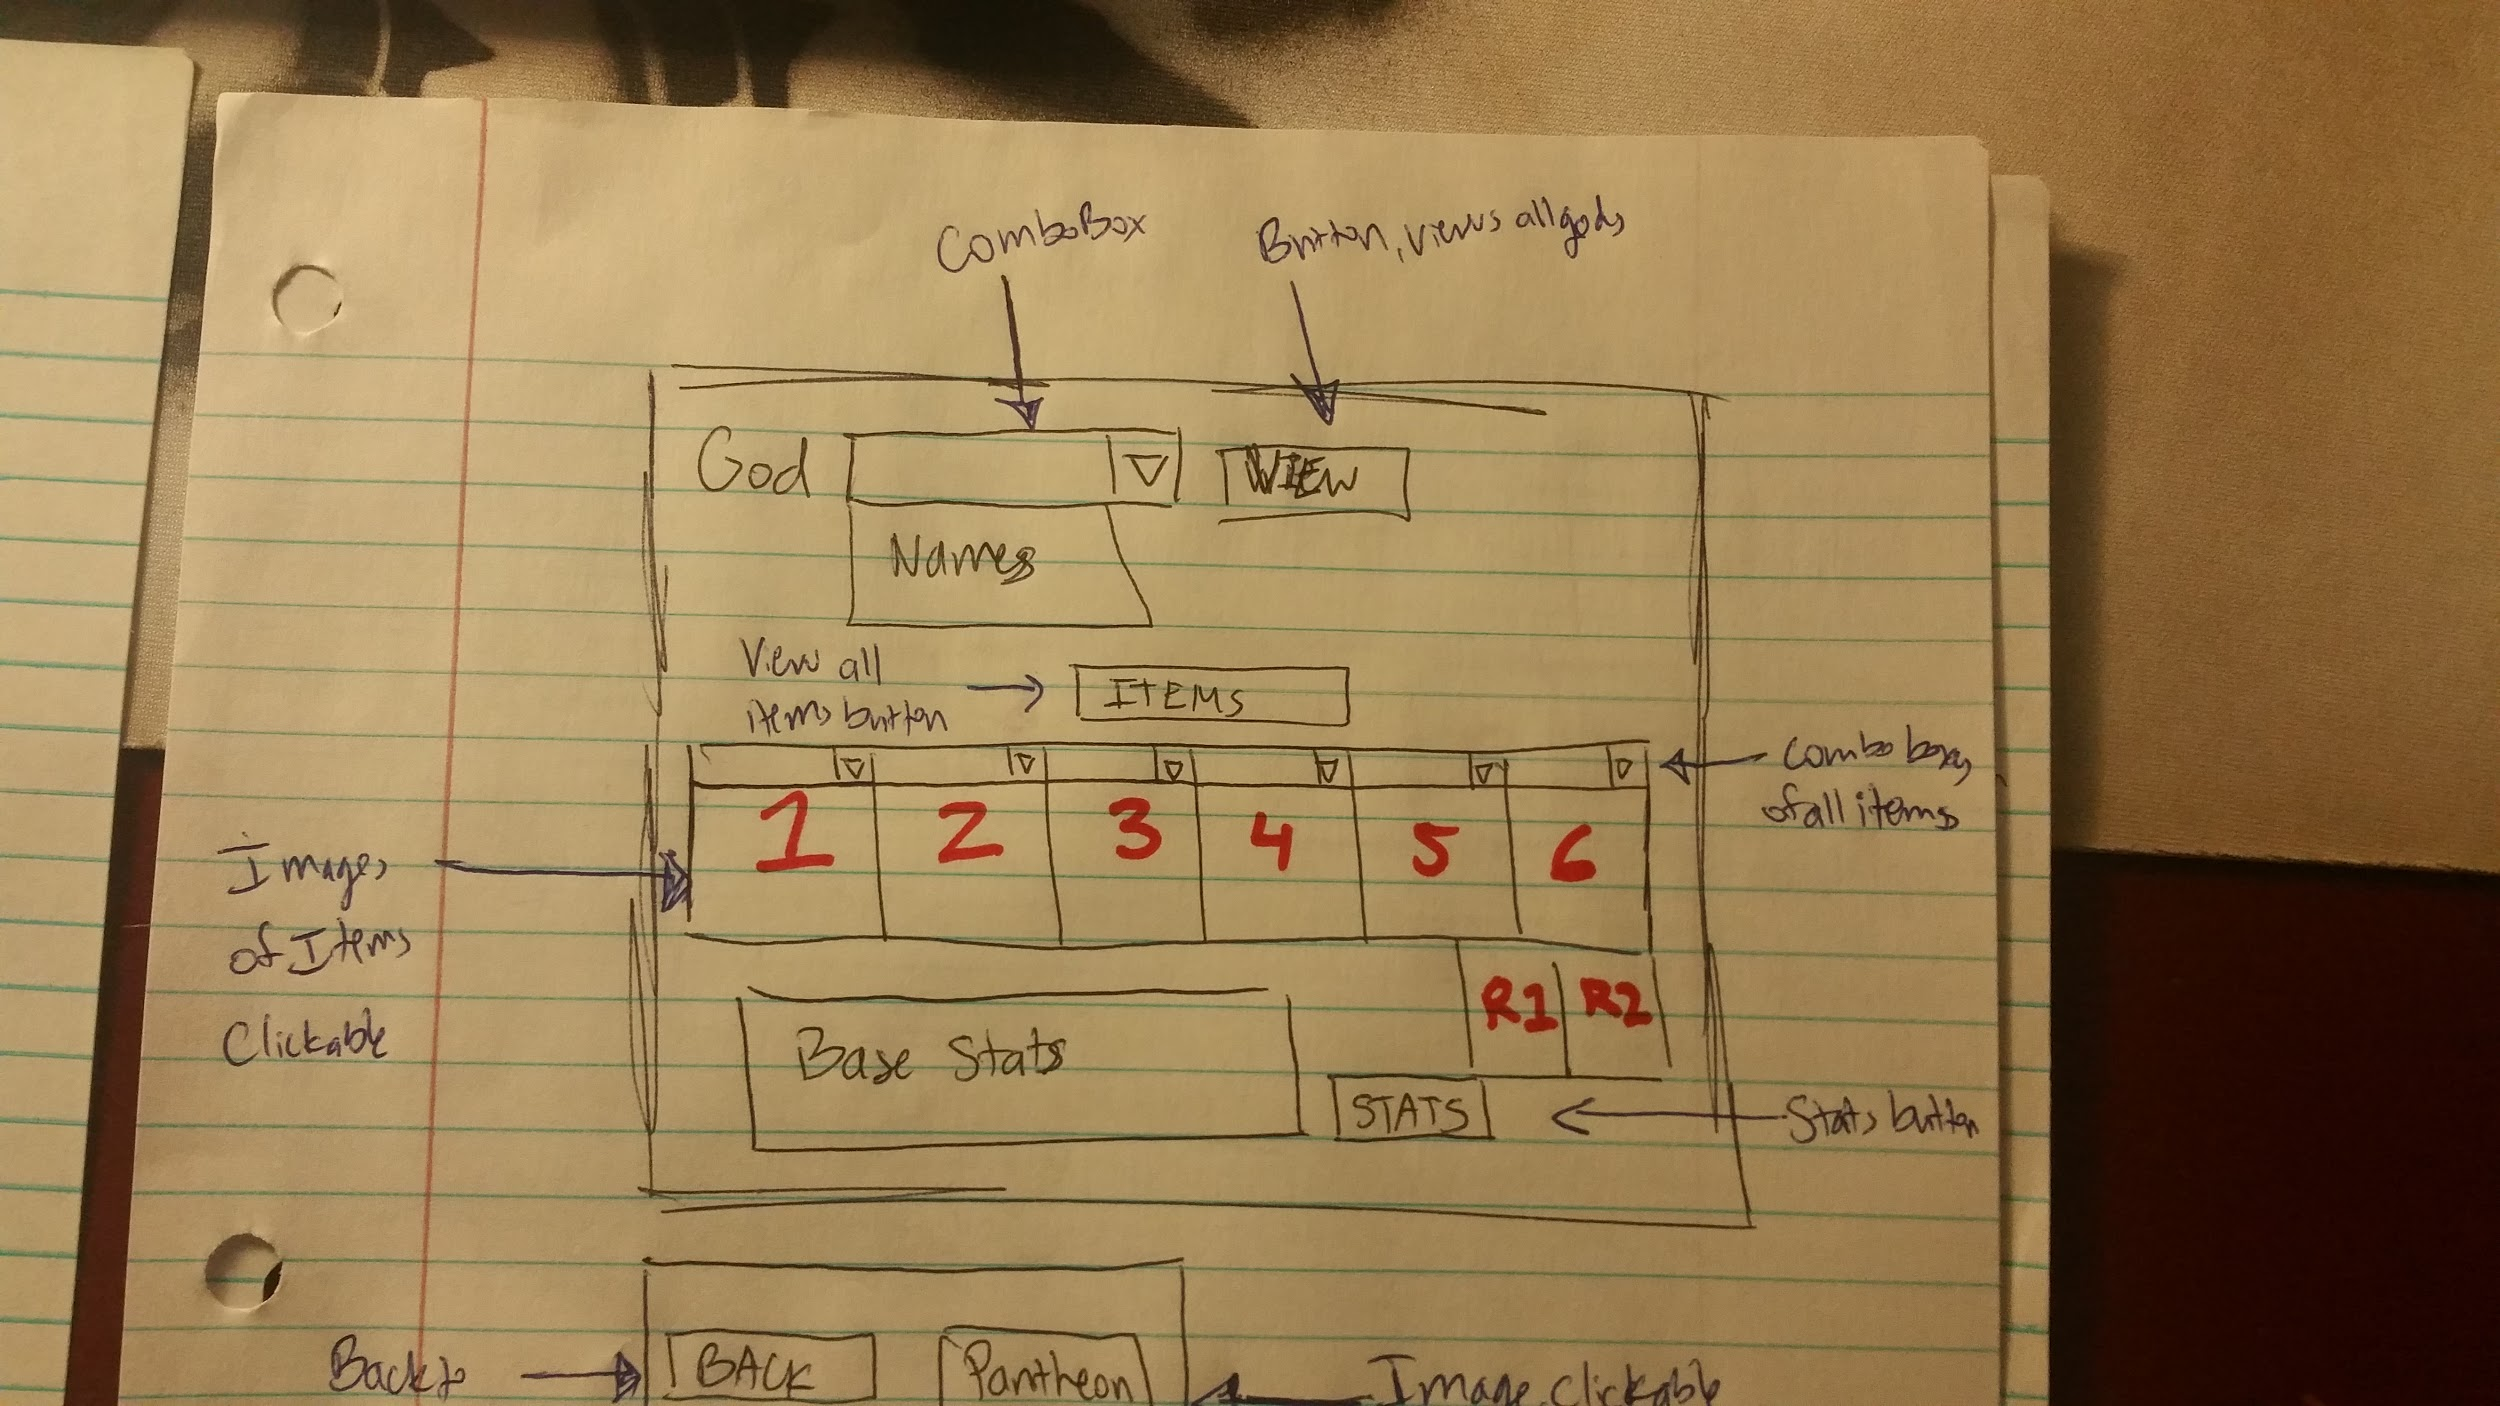 ComboBox
Button, views all gods
God
VIEW
Names
View all
items button
ITEMS
combo boxes
of all items
1 2 3 4 5 6
Images
of Items
Clickable
R1 R2
Base Stats
STATS
Stats button
Back to
BACK
Pantheon
Image, clickable